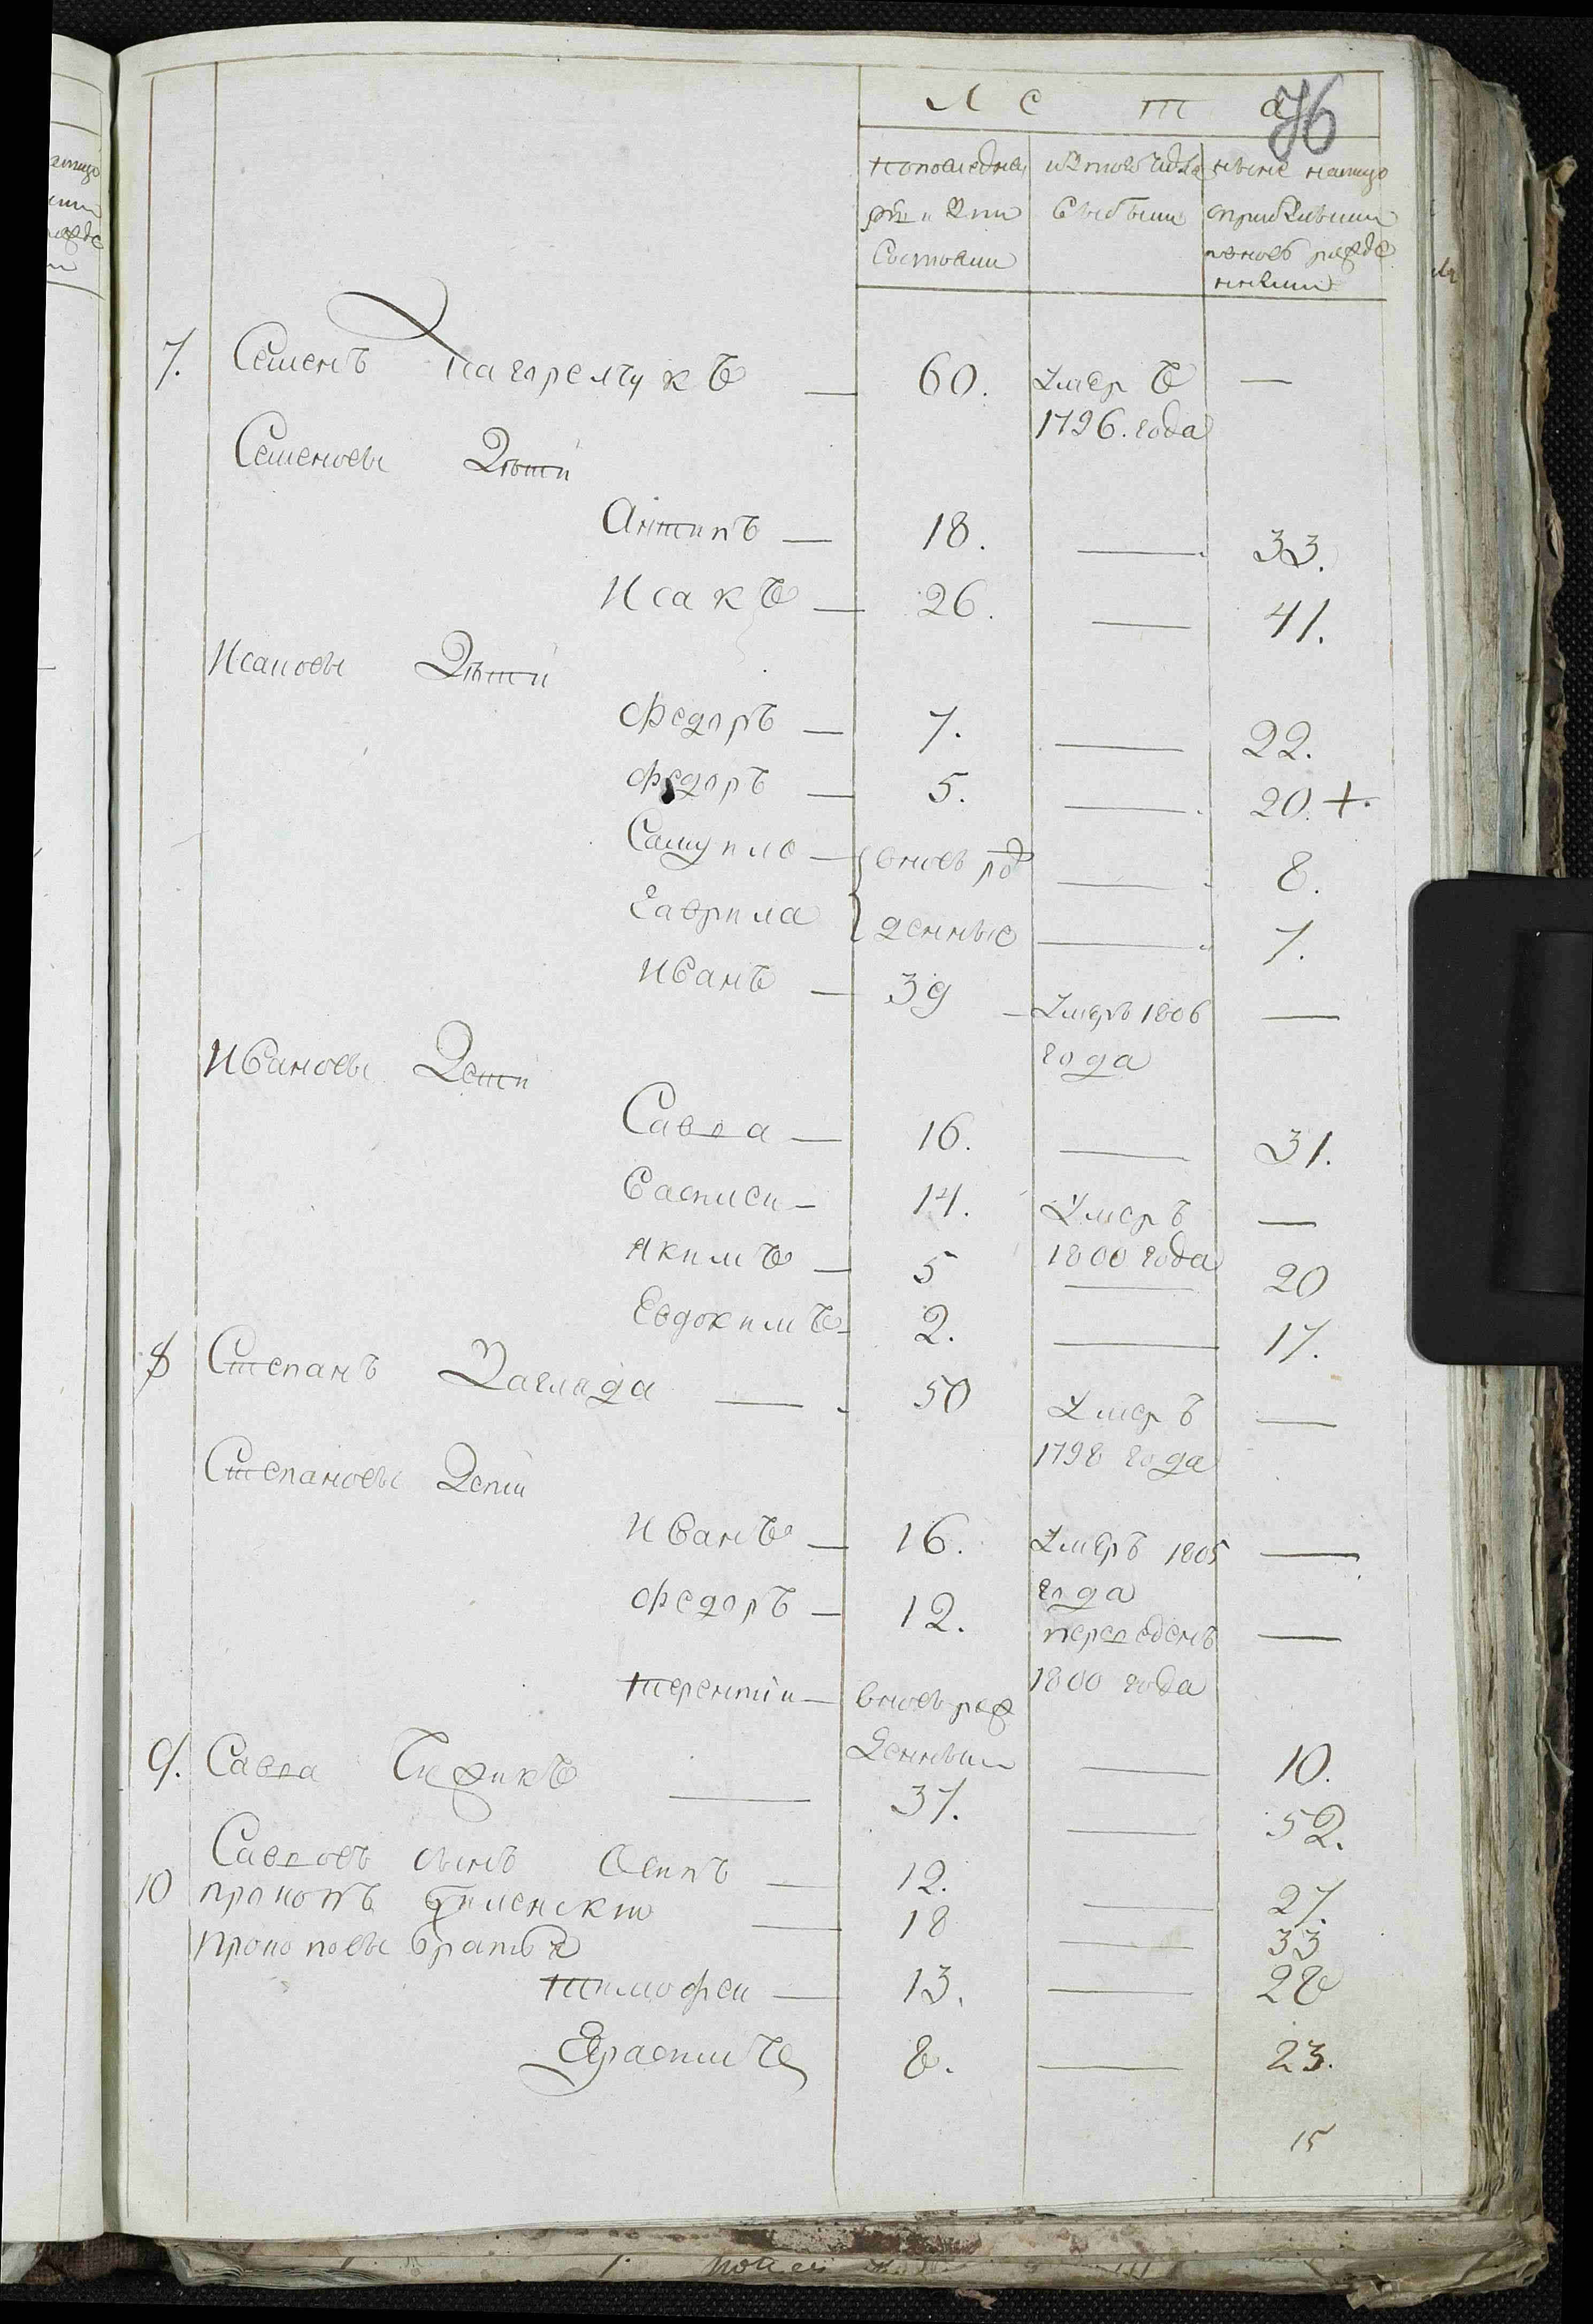 Лета 76
Попоследней изтого числа ныне налицо
ревизии выбыли сприбывшими
состояли ивновь рожде
нными
7. Семенъ Нагорелчукъ — 60. Умеръ —
1796. года
Семеновы Дѣти
Антипъ — 18. — 33.
Исакъ — 26. — 41.
Исаковы Дѣти
Федоръ — 7. — 22.
Федоръ — 5. — 20. +.
Самуило — вновь рож — 8.
Гаврила денные — 7.
Иванъ — 39 — Умеръ 1806 —
года
Ивановы Дети
Савва — 16. — 31.
Василеи — 14. Умеръ —
1800 года
Якимъ — 5 — 20
Евдокимъ — 2. — 17.
8 Степанъ Заглида — 50 Умеръ —
1798 года
Степановы Дети
Иванъ — 16. Умеръ 1805 —
года
Федоръ — 12. переведенъ —
1800 года
Терентіи — вновь рож
денныи — 10.
9. Савва — 37. — 52.
Саввовъ сынъ Осипъ — 12. — 27.
10 Прокопъ — 18 — 33
Прокоповы братья
Тимофеи — 13. — 28
Ерастимъ 8. — 23.
15